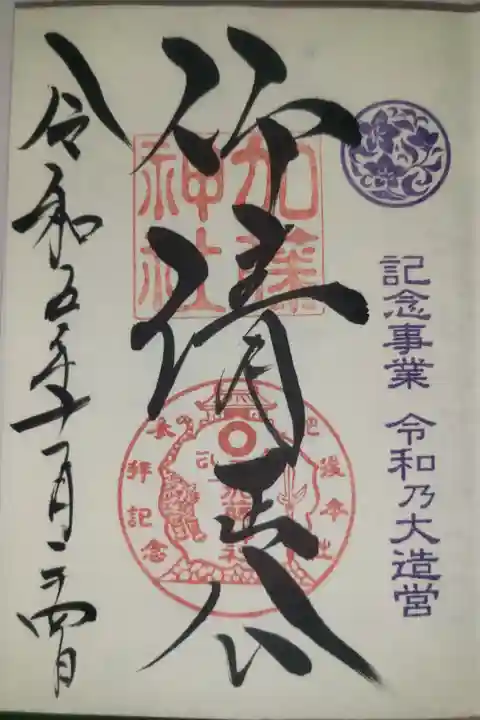 記念事業 令和乃大造営
仰清正公
加藤
神社
参拝記念
令和五年十月二十四日